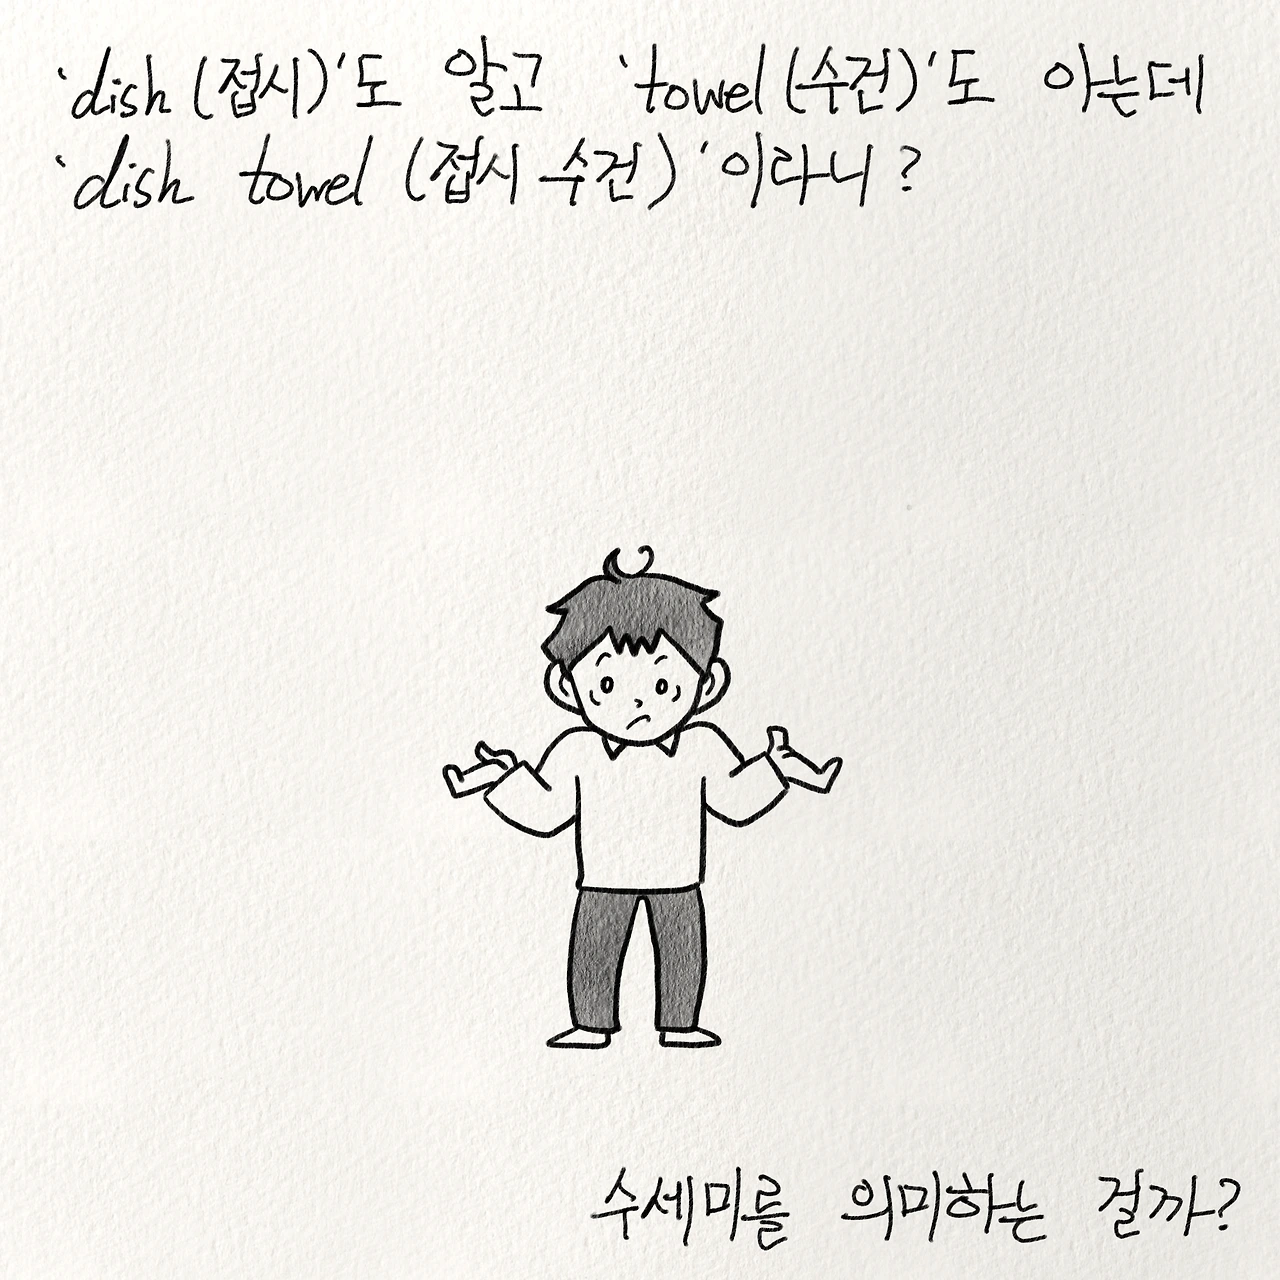 'dish (접시)'도 알고 'towel (수건)'도 아는데
'dish towel (접시 수건)'이라니?
수세미를 의미하는 걸까?